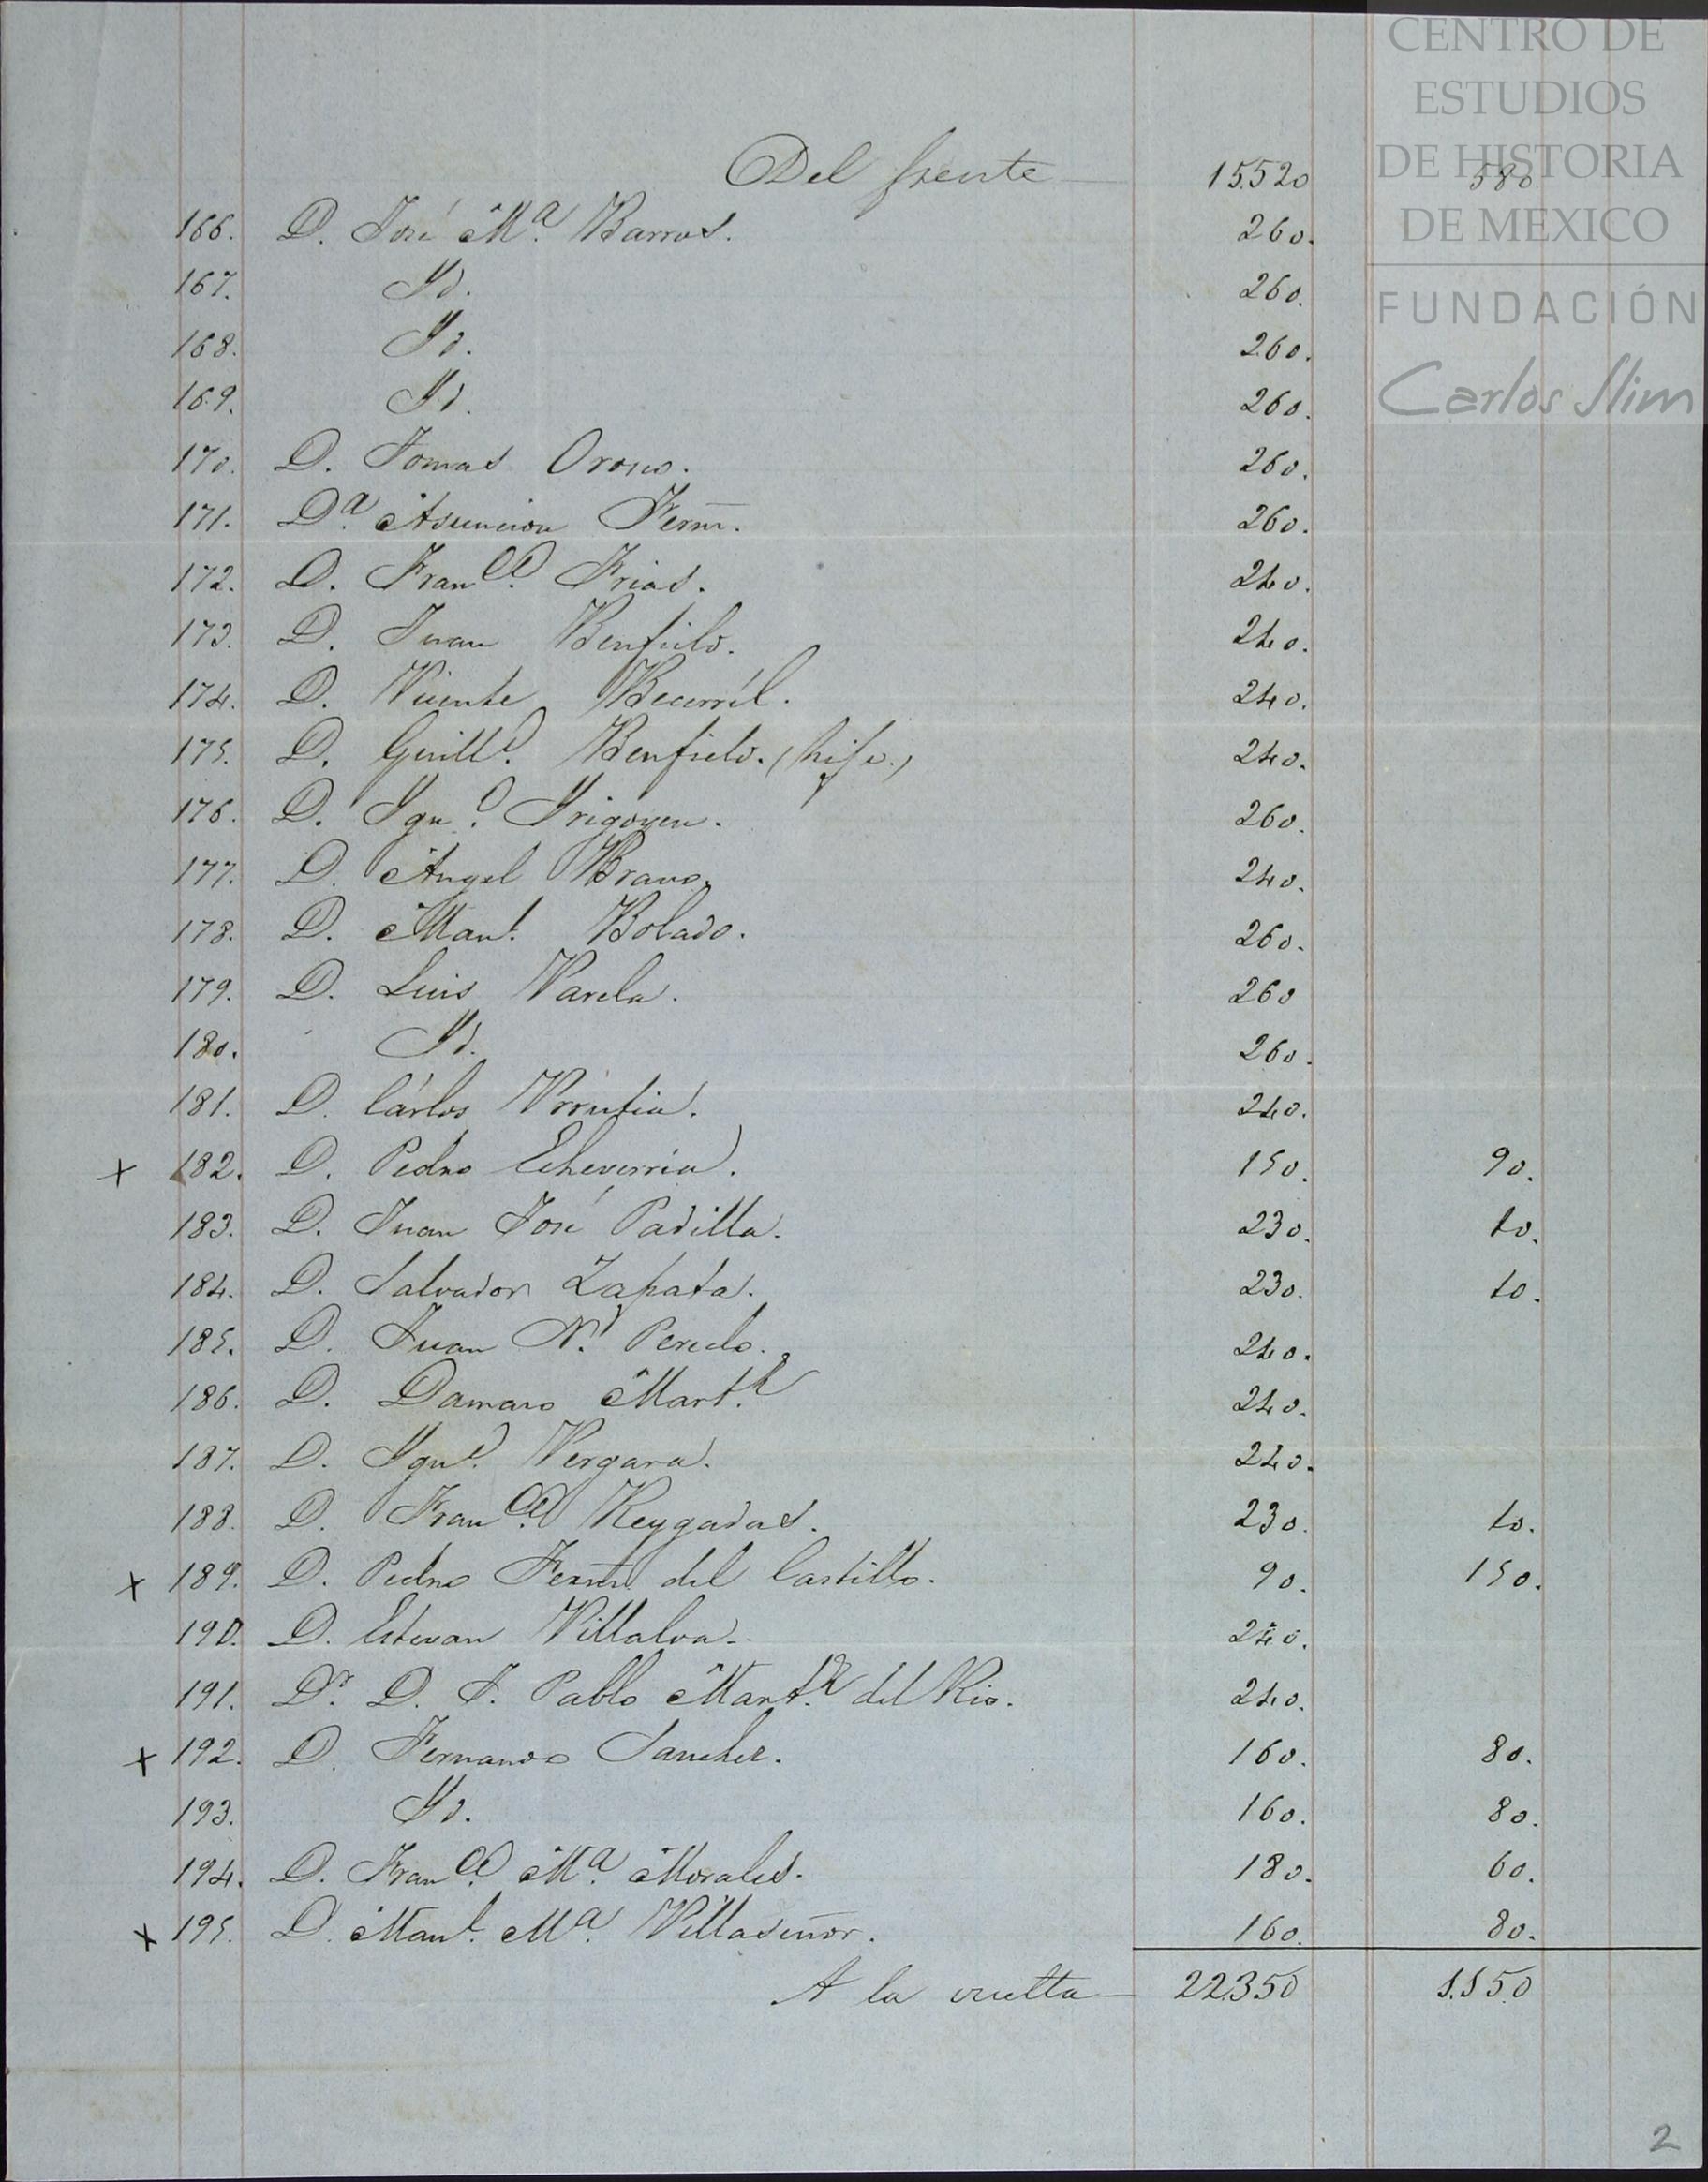 CENTRO DE
ESTUDIOS
DE HISTORIA
DE MEXICO
FUNDACIÓN
Carlos Slim
Del frente 15.520 580
166. D. José Mª. Barros. 260.
167. Yd. 260.
168. Yd. 260.
169. Yd. 260.
170. D. Tomas Orosco. 260.
171. Dª. Asuncion Fern̄. 260.
172. D. Franco. Frias. 240.
173. D. Juan Benfield. 240.
174. D. Vicente Becerríl. 240.
175. D. Guillo. Benfield. (hijo.) 240.
176. D. Ygno. Yrigoyen. 260.
177. D. Angel Bravo. 240.
178. D. Manl. Bolado. 260.
179. D. Luis Varela. 260
180. Yd. 260.
181. D. Cárlos Vrrutia. 240.
x 182. D. Pedro Echeverria. 150. 90.
183. D. Juan José Padilla. 230. 10.
184. D. Salvador Zapata. 230. 10.
185. D. Juan N. Peredo. 240.
186. D. Damaso Martz. 240.
187. D. Ygno. Vergara. 240.
188. D. Franco. Reygadas. 230. 10.
x 189. D. Pedro Fern̄. del Castillo. 90. 150.
190. D. Estevan Villalva. 240.
191. Dr. D. J. Pablo Martz. del Rio. 240.
x 192. D. Fernando Sanchez. 160. 80.
193. Yd. 160. 80.
194. D. Franco. Mª. Morales. 180. 60.
x 195. D. Manl. Mª. Villaseñor. 160. 80.
A la vuelta 22.350 1.150
2